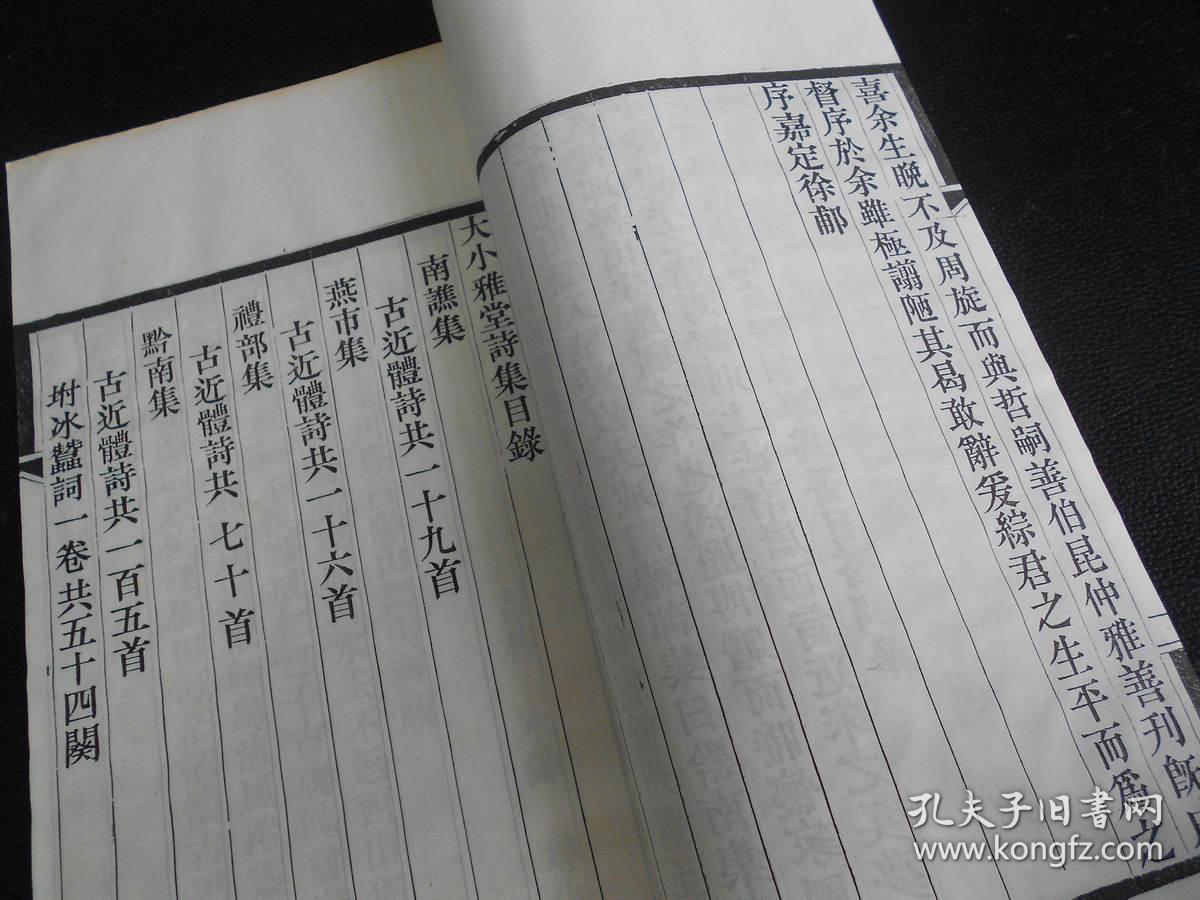 喜余生晚不及周旋而與哲嗣善伯昆仲雅善刊旣
督序於余雖極譾陋其曷敢辭爰綜君之生平而爲之
序嘉定徐郙
大小雅堂詩集目錄
南譙集
古近體詩共一十九首
燕市集
古近體詩共一十六首
禮部集
古近體詩共七十首
黔南集
古近體詩共一百五首
坿冰蠶詞一卷共五十四闋
孔夫子旧书网
www.kongfz.com